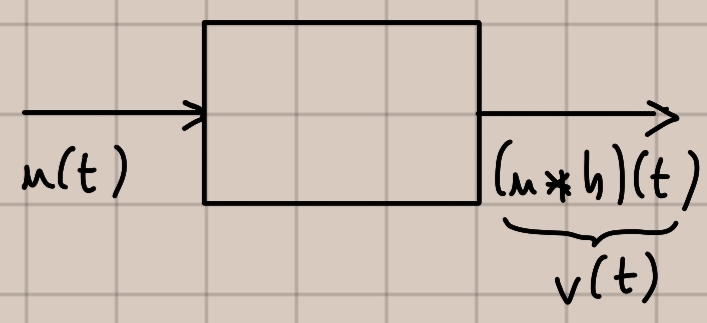 u(t)
(u*h)(t)
v(t)